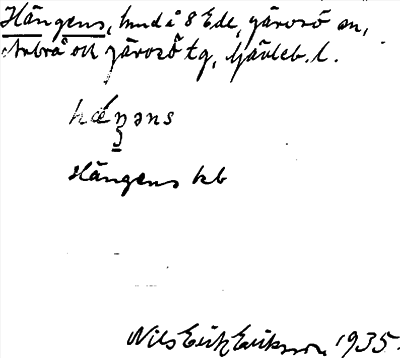 Hängens, hmd å 8 Ede, Järvsö sn,
Arbrå och Järvsö tg, Gävleb. l.
hæ´ŋəns
Hängens kb
Nils Erik Eriksson 1935.